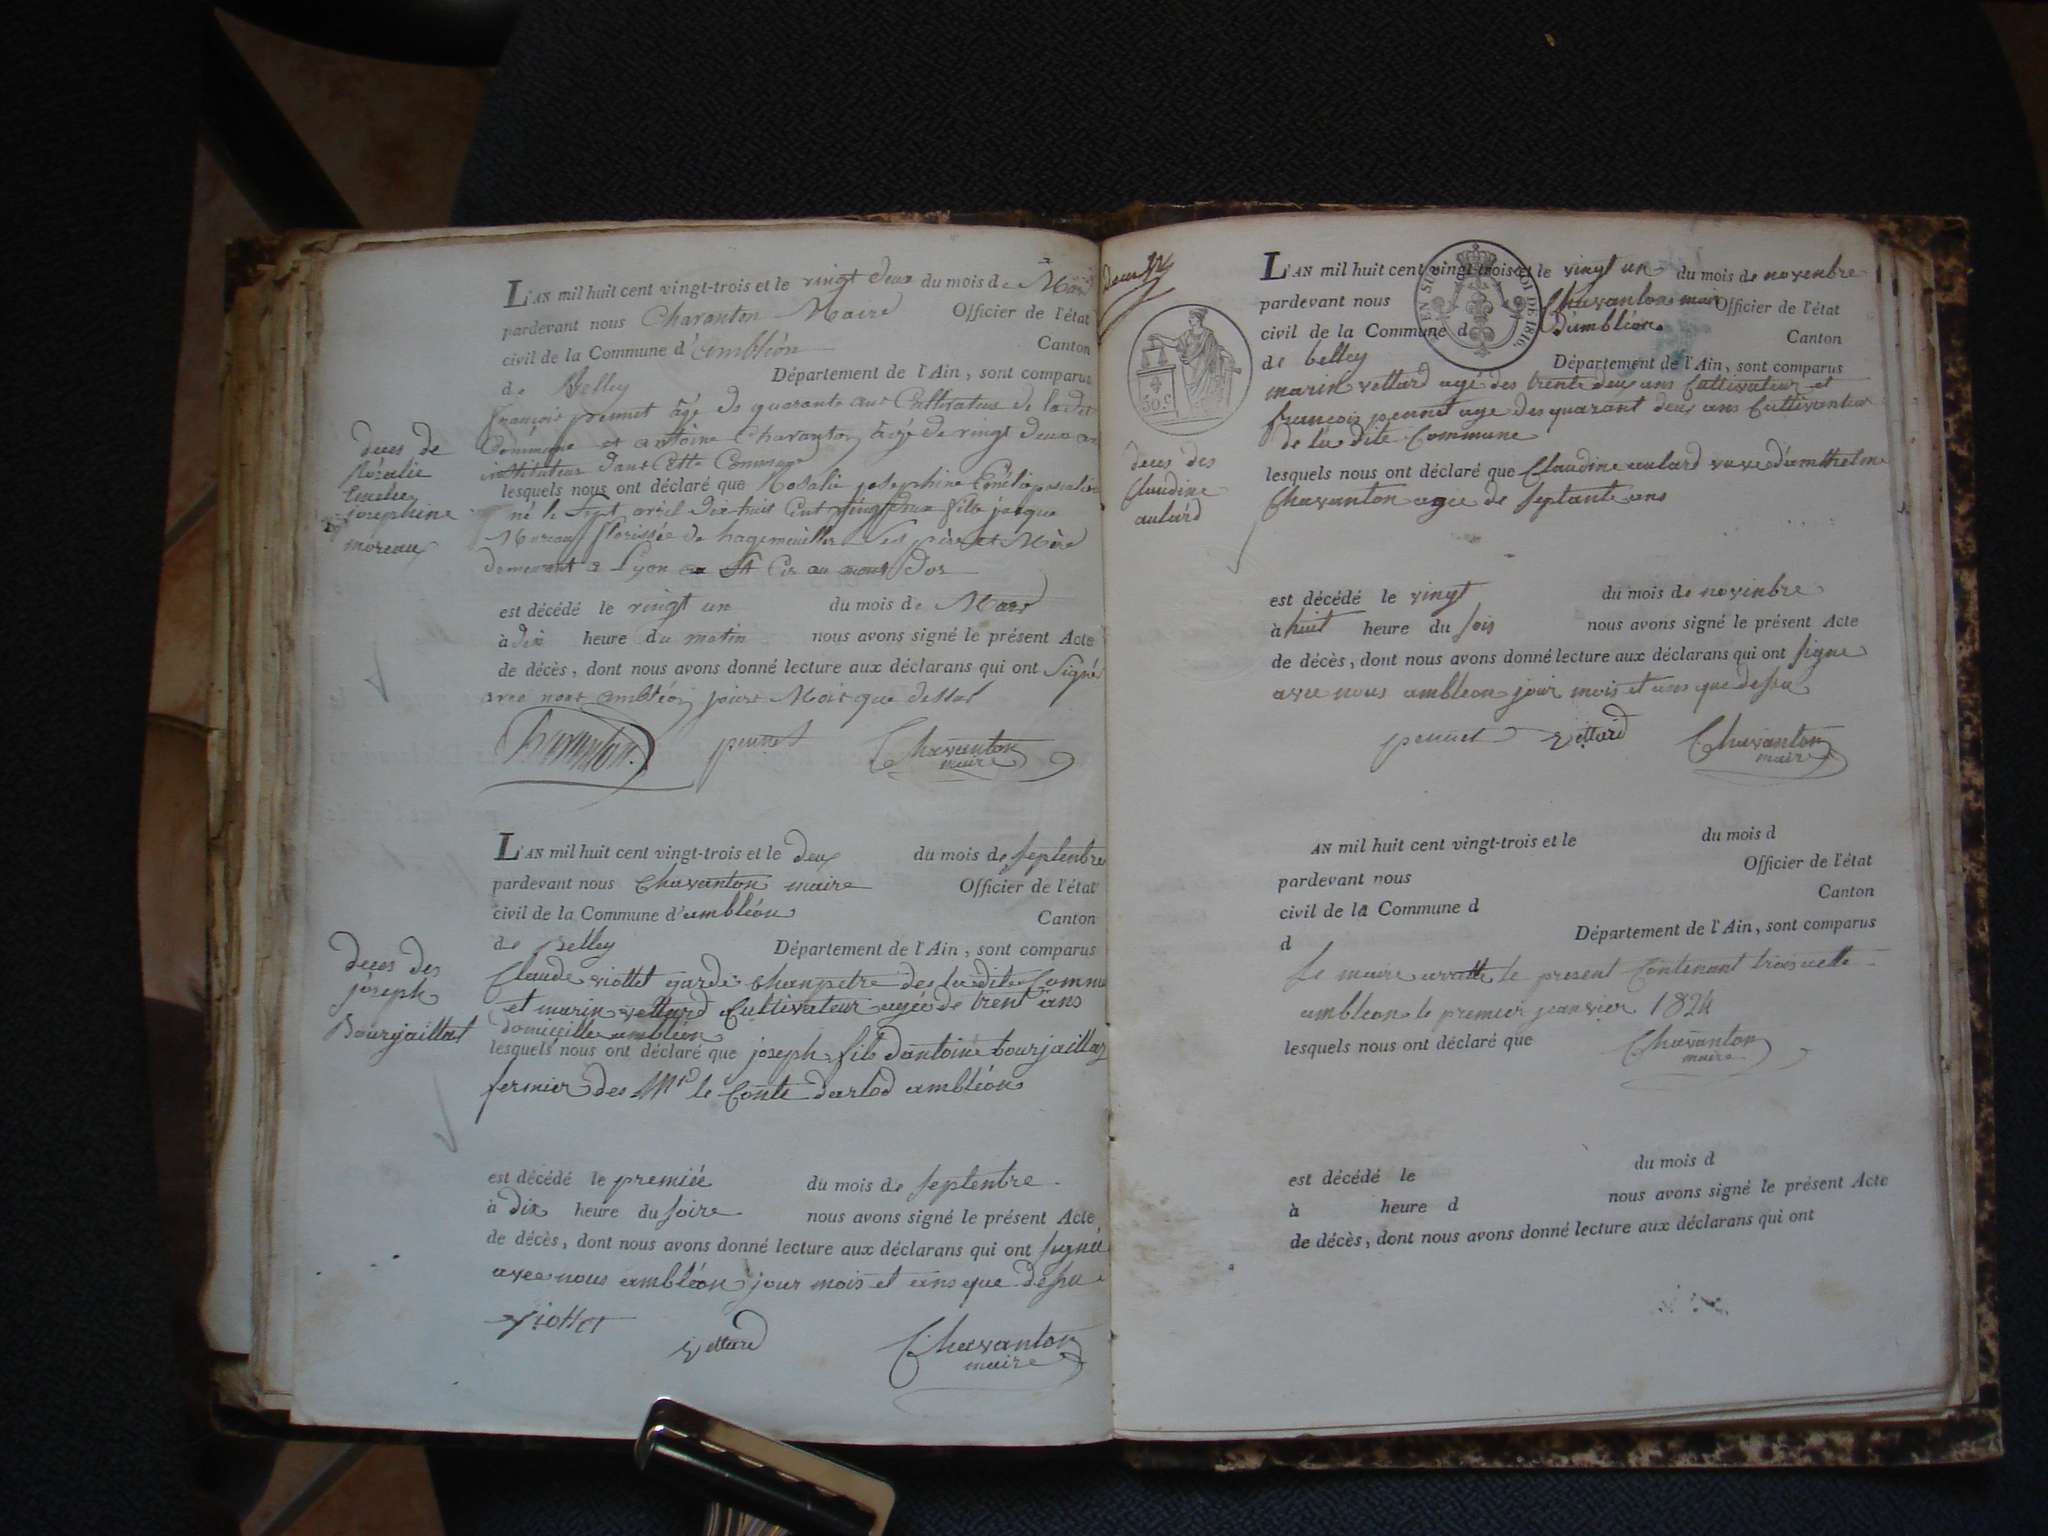 L'AN mil huit cent vingt-trois et le vingt deux du mois de Mars
pardevant nous Chavanton Maire Officier de l'état
civil de la Commune d'Ambléon Canton
de Belley Département de l'Ain, sont comparus
françois pennet âgé de quarante ans Cultivateur de la dite
Commune et antoine Chavanton âgé de vingt deux ans
instituteur dans Cette Commune
deces de
Rosalie
Emelie
josephine
moreau
lesquels nous ont déclaré que Rosalie josephine
né le sept avril dix huit Cent vingt deux fille jacque
Moreau florissée de hagemuiller Ses père et Mère
demeurant a Lyon ou St Cir au mont Dor
est décédé le vingt un du mois de Mars
à dix heure du matin nous avons signé le présent Acte
de décès, dont nous avons donné lecture aux déclarans qui ont Signé
avec nous Ambléon jour et Mois que dessus
Chavanton pennet Chavanton
maire
L'AN mil huit cent vingt-trois et le deux du mois de septenbre
pardevant nous Chavanton maire Officier de l'état
civil de la Commune d'ambléon Canton
de Belley Département de l'Ain, sont comparus
Claude viollet garde Chanpetre des la dite Commu
et marin vettard Cultivateur agée de trent ans
domicille ambléon
deces des
joseph
Bourjaillat
lesquels nous ont déclaré que joseph fils dantoine bourjaillat
fermier des Mr le Conte darlod ambléon
est décédé le premiée du mois de septenbre
à dix heure du soire nous avons signé le présent Acte
de décès, dont nous avons donné lecture aux déclarans qui ont signé
avec nous ambléon jour mois et ans que desu
viollet
vettard Chavanton
maire
L'AN mil huit cent vingt-trois et le vingt un du mois de novenbre
pardevant nous Chavanton maire Officier de l'état
civil de la Commune d Dambléon Canton
de belley Département de l'Ain, sont comparus
marin vettard agé des trente deux ans Cultivateur et
françois pennet age des quarant deux ans Cultivanteur
de la dite Commune
50 c
deces des
Claudine
aulard
lesquels nous ont déclaré que Claudine aulard veuve danthelme
Chavanton agee de septante ans
est décédé le vingt du mois de novinbre
à huit heure du sois nous avons signé le présent Acte
de décès, dont nous avons donné lecture aux déclarans qui ont signe
avec nous ambleon jour mois et ans que desu
pennet vettard Chavanton
maire
AN mil huit cent vingt-trois et le du mois d
pardevant nous Officier de l'état
civil de la Commune d Canton
d Département de l'Ain, sont comparus
Le maire le present Contenant trois
ambleon le premier janvier 1824
lesquels nous ont déclaré que Chavanton
maire
est décédé le du mois d
à heure d nous avons signé le présent Acte
de décès, dont nous avons donné lecture aux déclarans qui ont